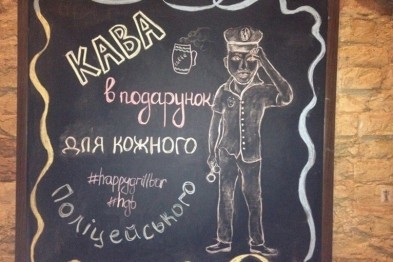 КАВА
в подарунок
для кожного
#happygrillbar
#hgb
Поліцейського